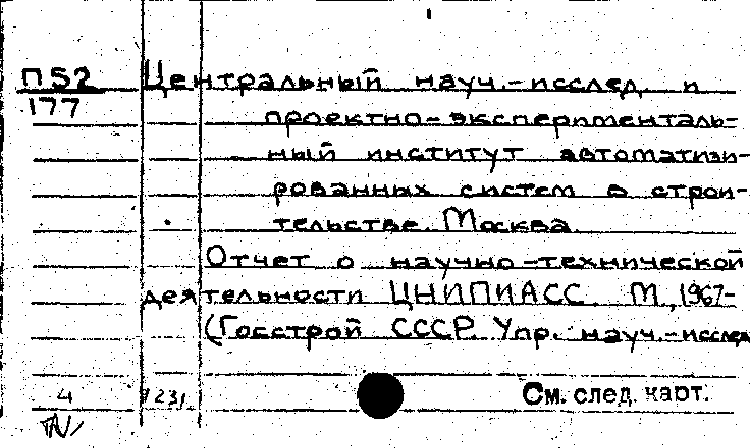 П52 Центральный науч.-исслед. и
177
проектно-эксперименталь-
ный институт автоматизи-
рованных систем в строи-
тельстве. Москва.
Отчет о научно-технической
деятельности ЦНИПИАСС. М., 1967-
(Госстрой СССР. Упр. науч.-исслед
4 См. след. карт.